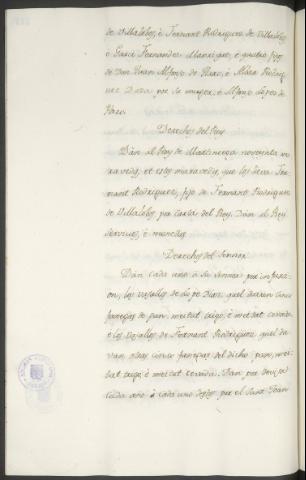 de Villalobos, é Ferrant Rodriguez de Villalobos,
é Garci Fernandez Manrique, é quatro fijos
de Don Joan Alfonso de Haro, é
por su muger, é Alfonso Lopez de
Haro.
Derechos del Rey
Dan al Rey de Martiniega noventa ma
ravedis, et estos maravedis, que los lieva Fer
rant Rodriguez, fijo de Ferrant Rodriguez
de Villalobos por carta del Rey. Dan al Rey
servicios, é monedas.
Derechos del Sennor
Dan cada anno á su Sennor por infurci
on, los vasallos de Lope Diaz, quel dan cinco
fanegas de pan, meitad trigo, é meitad cevada,
é los vasallos de Ferrant Rodriguez quel da
van otras cinco fanegas del dicho pan, mei
tad trigo, é meitad cevada. Dan por
cada año á cada uno dellos por el Sant Joan